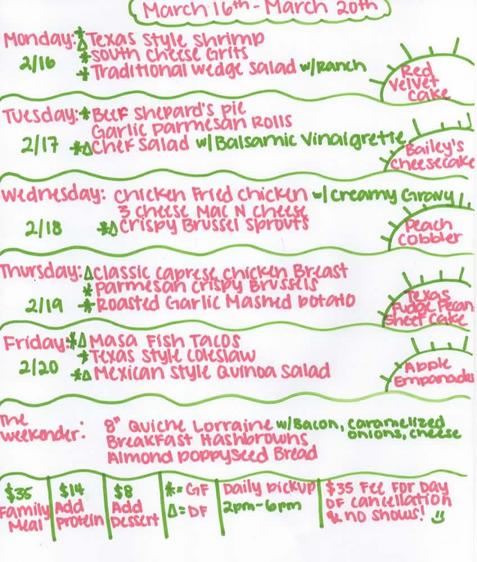 March 16th - March 20th
Monday: *Δ Texas Style Shrimp
* South Cheese Grits
2/16 * Traditional Wedge Salad w/Ranch
Red Velvet Cake
Tuesday: * Beef Shepard's Pie
Garlic Parmesan Rolls
2/17 *Δ Chef Salad w/ Balsamic Vinaigrette
Bailey's Cheesecake
Wednesday: Chicken Fried Chicken w/ Creamy Gravy
3 Cheese Mac N Cheese
2/18 *Δ Crispy Brussel Sprouts
Peach Cobbler
Thursday: Δ Classic Caprese Chicken Breast
* Parmesan Crispy Brussels
2/19 * Roasted Garlic Mashed Potato
Texas Fudge Pecan Sheet Cake
Friday: *Δ Masa Fish Tacos
* Texas Style Coleslaw
2/20 *Δ Mexican Style Quinoa Salad
Apple Empanadas
The Weekender: 8" Quiche Lorraine w/ Bacon, caramelized onions, cheese
Breakfast Hashbrowns
Almond Poppyseed Bread
$35 Family Meal
$14 Add Protein
$8 Add Dessert
* = GF
Δ = DF
Daily Pickup
2pm-6pm
$35 Fee For Day
of cancellation
& no shows!